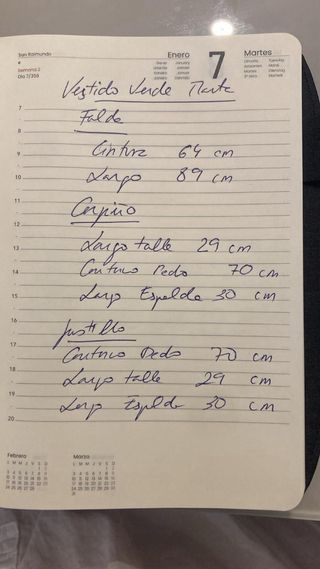 San Raimundo
Semana 2
Día 7/358
Enero
7
Martes
Vestido Verde Marta
Falda
Cintura 64 cm
Largo 89 cm
Corpiño
Largo talle 29 cm
Contorno Pecho 70 cm
Largo Espalda 30 cm
Justillo
Contorno Pecho 70 cm
Largo talle 29 cm
Largo Espalda 30 cm
7
8
9
10
11
12
13
14
15
16
17
18
19
20
Febrero
Marzo